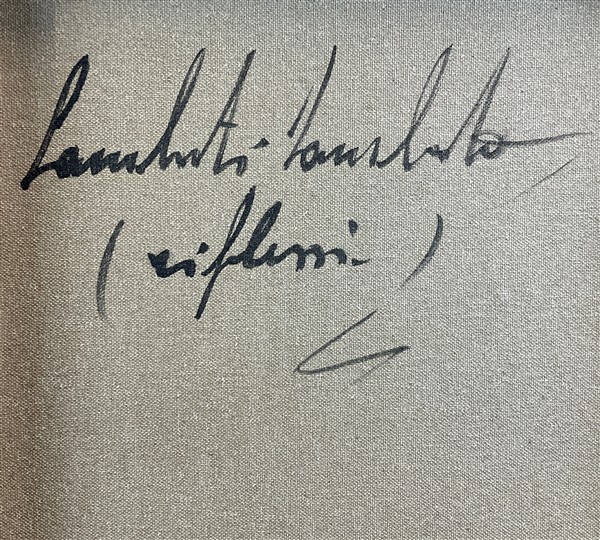 Lamberti Lamberto
(riflessi)